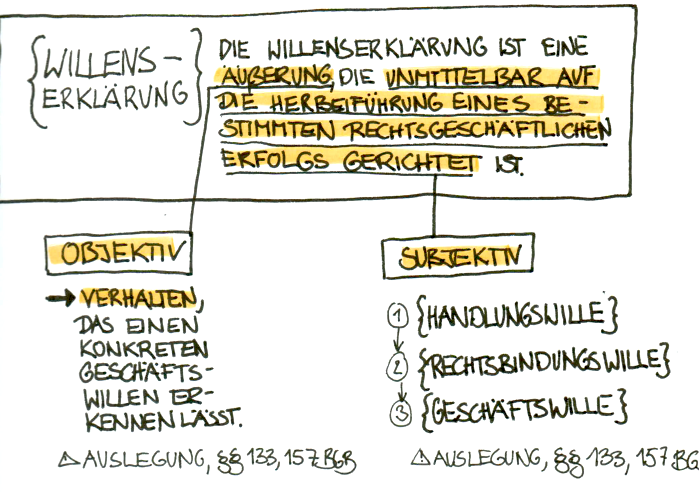 {WILLENS-
ERKLÄRUNG}
DIE WILLENSERKLÄRUNG IST EINE
ÄUßERUNG, DIE UNMITTELBAR AUF
DIE HERBEIFÜHRUNG EINES BE-
STIMMTEN RECHTSGESCHÄFTLICHEN
ERFOLGS GERICHTET IST.
OBJEKTIV
→ VERHALTEN,
DAS EINEN
KONKRETEN
GESCHÄFTS-
WILLEN ER-
KENNEN LÄSST.
⚠ AUSLEGUNG, §§ 133, 157 BGB
SUBJEKTIV
1 {HANDLUNGSWILLE}
2 {RECHTSBINDUNGSWILLE}
3 {GESCHÄFTSWILLE}
⚠ AUSLEGUNG, §§ 133, 157 BG